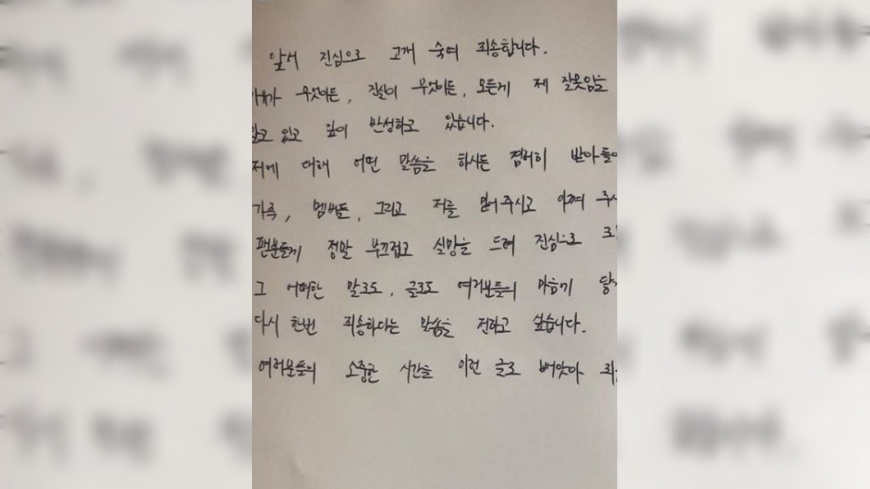 앞서 진심으로 고개 숙여 죄송합니다.
무엇이든, 진실이 무엇이든, 모든게 제 잘못임을
알고 있고 깊이 반성하고 있습니다.
저에 대해 어떤 말씀을 하시든 겸허히 받아들이
가족, 멤버들, 그리고 저를 믿어주시고 아껴 주시
팬분들게 정말 부끄럽고 실망을 드려 진심으로 죄
그 어떠한 말로도, 글로도 여러분들의 마음이
다시 한번 죄송하다는 말씀을 전하고 싶습니다.
여러분들의 소중한 시간을 이런 글로 빼앗아 죄